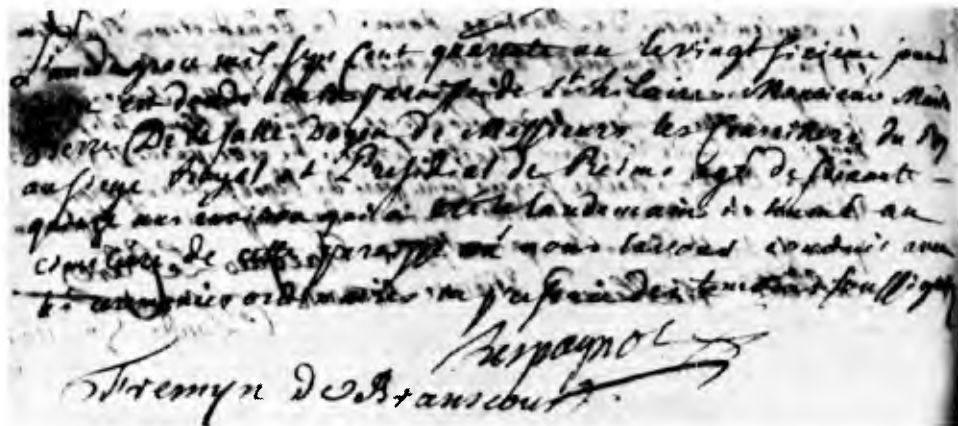 L'an de grace mil sept cent quarante un le vingt sixieme jour
est decedé dans la paroisse de St hilaire Monsieur
Pierre De la Salle Doyen de Messieurs les Conseillers du Roy
au siege Royal et Presidial de Reims agé de soixante
quinze ans environ qui a été le landemain inhumé au
cimetiere de cette paroisse où nous l'avons conduit avec
les ceremonies ordinaires en presence des temoins soussignez
Lespagnol
Fremyn de Branscourt